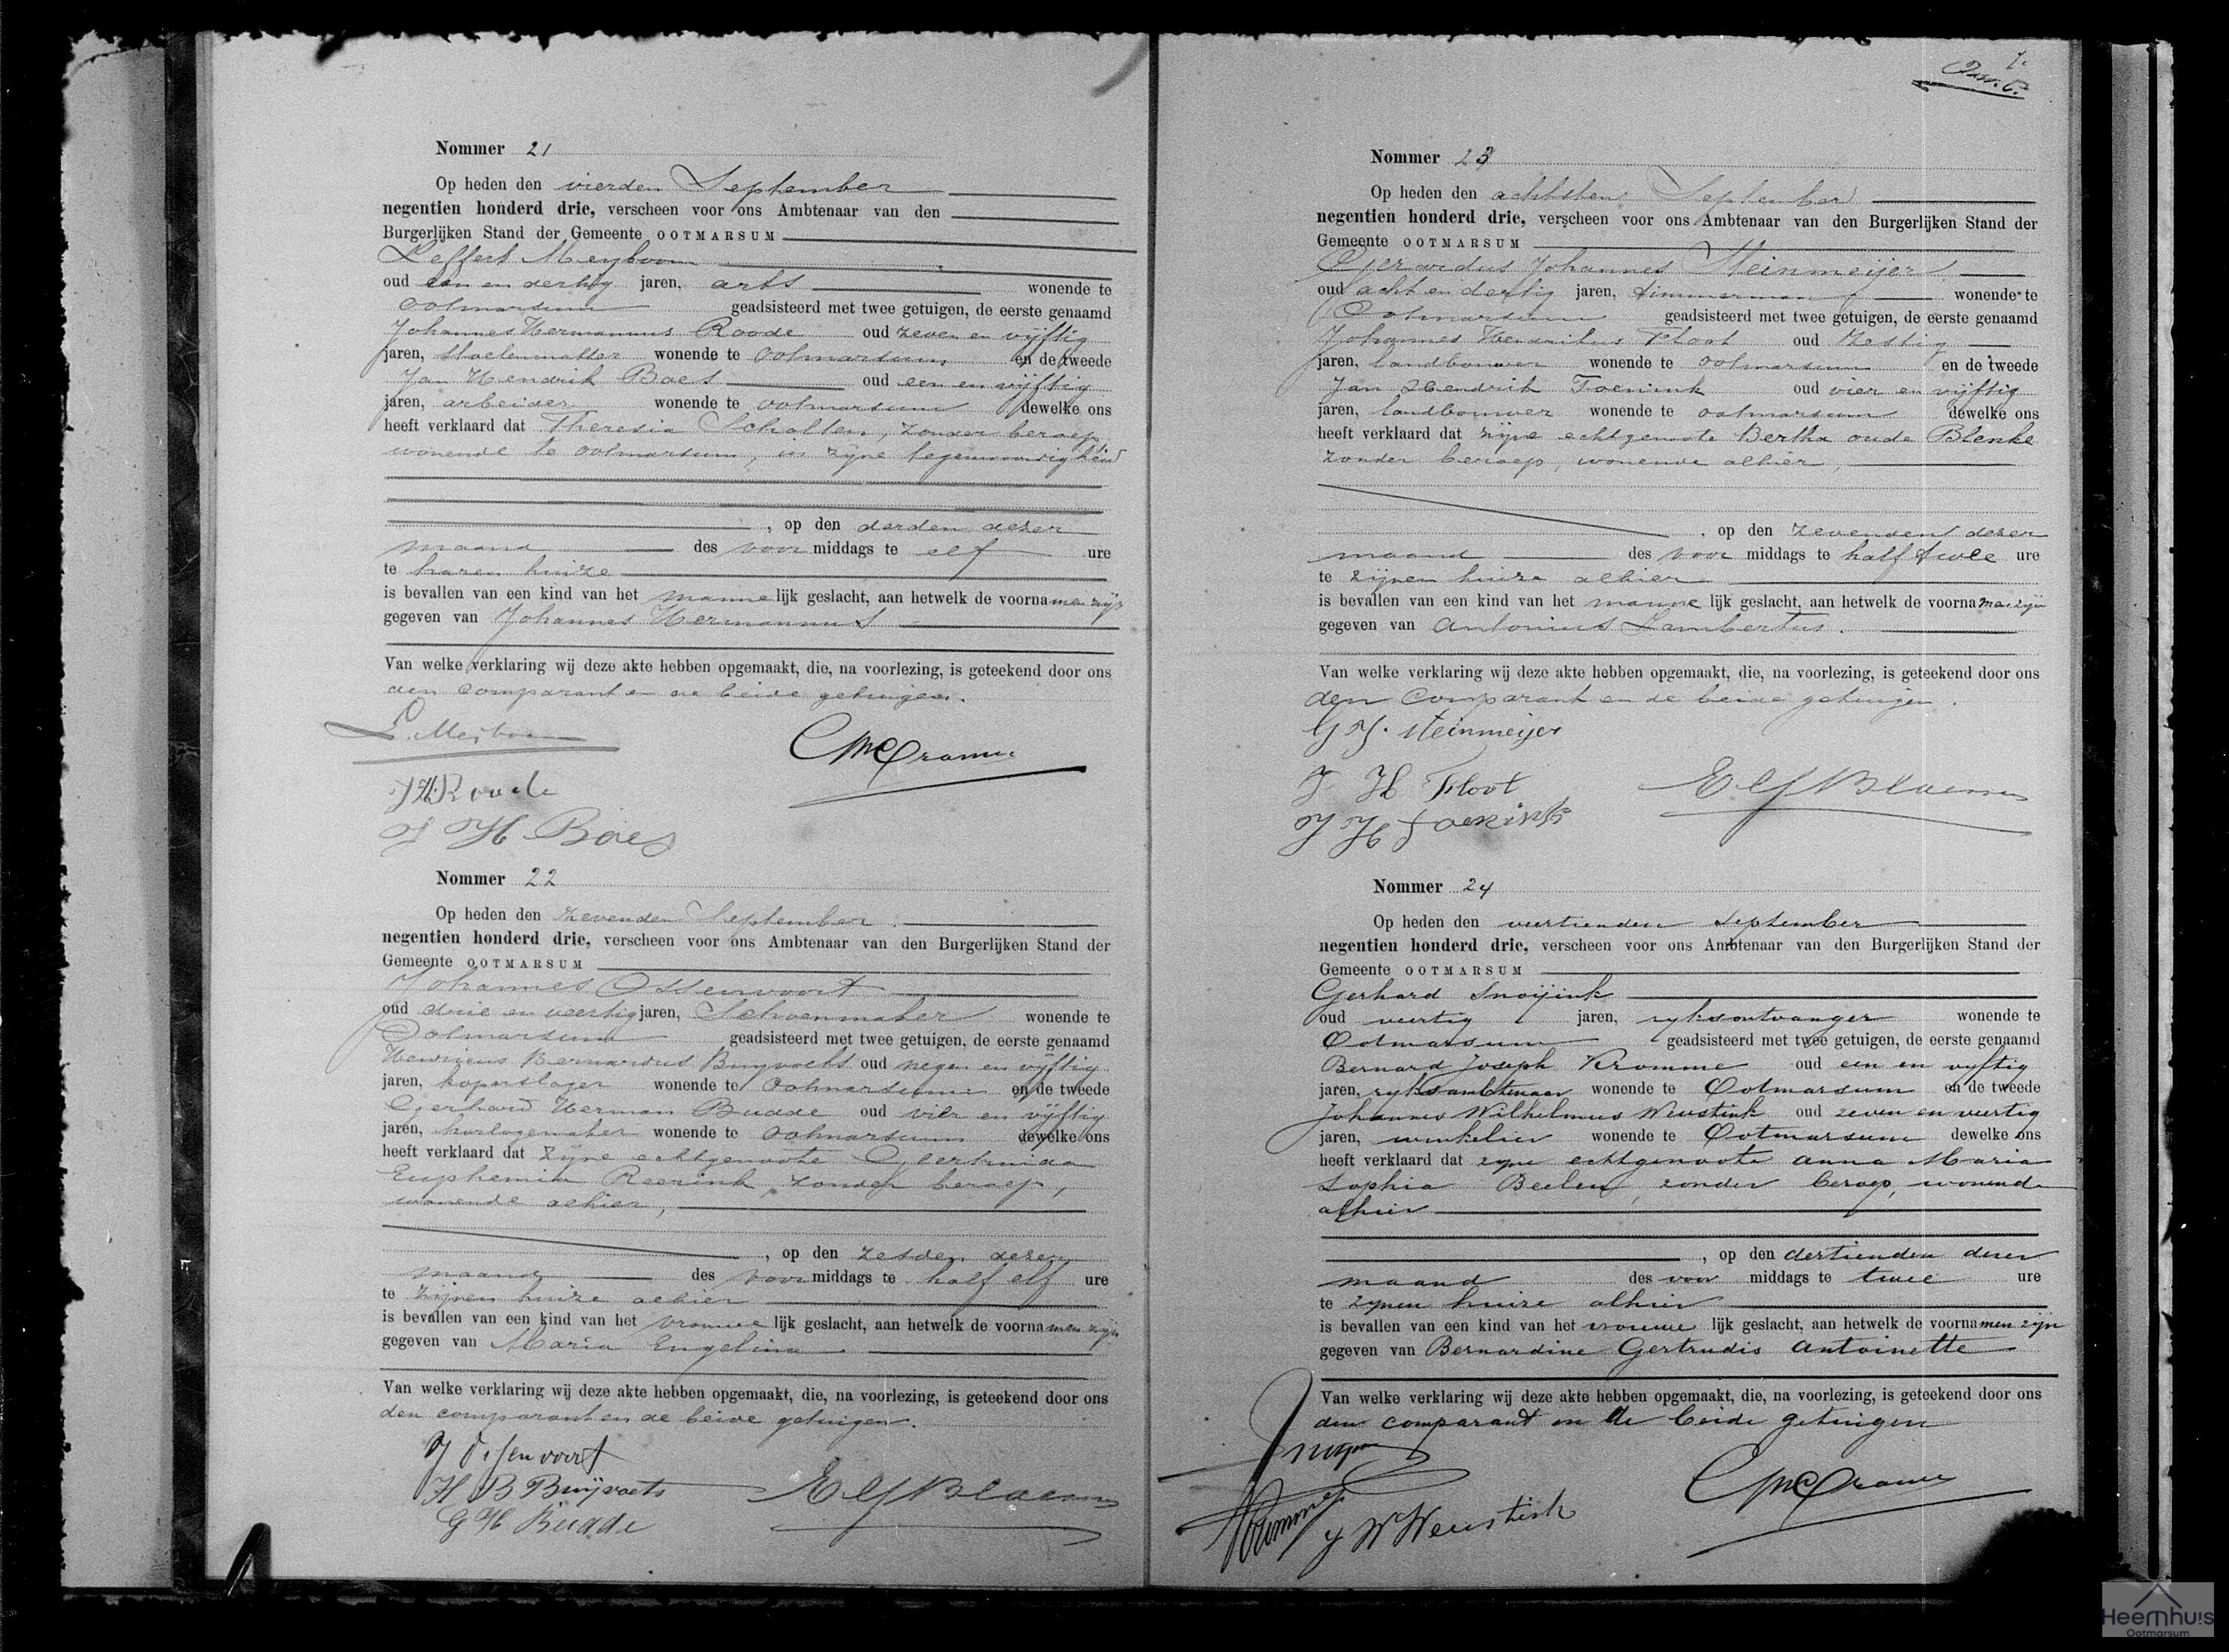 Nommer 21
Op heden den vierden September
negentien honderd drie, verscheen voor ons Ambtenaar van den
Burgerlijken Stand der Gemeente OOTMARSUM
Leffert Meyboom
oud een en dertig jaren, arts wonende te
Ootmarsum geadsisteerd met twee getuigen, de eerste genaamd
Johannes Hermannus Roode oud zeven en vijftig
jaren, stoelenmatter wonende te Ootmarsum en de tweede
Jan Hendrik Boes oud een en vijftig
jaren, arbeider wonende te Ootmarsum dewelke ons
heeft verklaard dat Theresia Scholten, zonder beroep,
wonende te Ootmarsum, in zijne tegenwoordigheid
, op den derden dezer
maand des voor middags te elf ure
te haren huize
is bevallen van een kind van het manne lijk geslacht, aan hetwelk de voorna men zijn
gegeven van Johannes Hermannus
Van welke verklaring wij deze akte hebben opgemaakt, die, na voorlezing, is geteekend door ons
den comparant en de beide getuigen.
L. Meijboom
JH Roode
J H Boes
Nommer 22
Op heden den zevenden September
negentien honderd drie, verscheen voor ons Ambtenaar van den Burgerlijken Stand der
Gemeente OOTMARSUM
Johannes Ossenvoort
oud drie en veertig jaren, Schoenmaker wonende te
Ootmarsum geadsisteerd met twee getuigen, de eerste genaamd
Henricus Bernardus Buyvoets oud negen en vijftig
jaren, koperslager wonende te Ootmarsum en de tweede
Gerhard Herman Budde oud vier en vijftig
jaren, horlogemaker wonende te Ootmarsum dewelke ons
heeft verklaard dat zijne echtgenoote Geertruida
Euphemia Reerink, zonder beroep,
wonende alhier,
, op den zesden dezer
maand des voor middags te half elf ure
te zijnen huize alhier
is bevallen van een kind van het vrouwe lijk geslacht, aan hetwelk de voorna men zijn
gegeven van Maria Engelina
Van welke verklaring wij deze akte hebben opgemaakt, die, na voorlezing, is geteekend door ons
den comparant en de beide getuigen.
J Ossenvoort
H B Buijvoets
G H Budde
7.
Nommer 23
Op heden den achtsten September
negentien honderd drie, verscheen voor ons Ambtenaar van den Burgerlijken Stand der
Gemeente OOTMARSUM
Gerardus Johannes Steinmeijer
oud acht en dertig jaren, timmerman wonende te
Ootmarsum geadsisteerd met twee getuigen, de eerste genaamd
Johannes Hendrikus Floot oud zestig
jaren, landbouwer wonende te Ootmarsum en de tweede
Jan Hendrik Toenink oud vier en vijftig
jaren, landbouwer wonende te Ootmarsum dewelke ons
heeft verklaard dat zijne echtgenoote Bertha oude Blenke
zonder beroep, wonende alhier,
, op den zevenden dezer
maand des voor middags te half twee ure
te zijnen huize alhier
is bevallen van een kind van het manne lijk geslacht, aan hetwelk de voorna men zijn
gegeven van Antonius Lambertus.
Van welke verklaring wij deze akte hebben opgemaakt, die, na voorlezing, is geteekend door ons
den comparant en de beide getuigen.
G J. Steinmeijer
J H Floot
J H Toenink
Nommer 24
Op heden den veertienden September
negentien honderd drie, verscheen voor ons Ambtenaar van den Burgerlijken Stand der
Gemeente OOTMARSUM
Gerhard Snoijink
oud veertig jaren, ryksontvanger wonende te
Ootmarsum geadsisteerd met twee getuigen, de eerste genaamd
Bernard Joseph Kromme oud een en vyftig
jaren, ryksambtenaar wonende te Ootmarsum en de tweede
Johannes Wilhelmus Weustink oud zeven en veertig
jaren, winkelier wonende te Ootmarsum dewelke ons
heeft verklaard dat zyne echtgenoote Anna Maria
Sophia Beelen, zonder beroep, wonende
alhier
, op den dertienden dezer
maand des voor middags te twee ure
te zynen huize alhier
is bevallen van een kind van het vrouwe lijk geslacht, aan hetwelk de voorna men zijn
gegeven van Bernardine Gertrudis Antoinette
Van welke verklaring wij deze akte hebben opgemaakt, die, na voorlezing, is geteekend door ons
den comparant en de beide getuigen
J W Weustink
Heemhuis
Ootmarsum